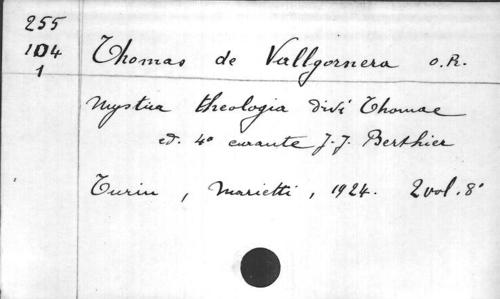 255
104
1
Thomas de Vallgornera O.R.
Mystica theologia divi Thomae
ed. 4° curante J.J. Berthier
Turin, Marietti, 1924. 2 vol. 8°